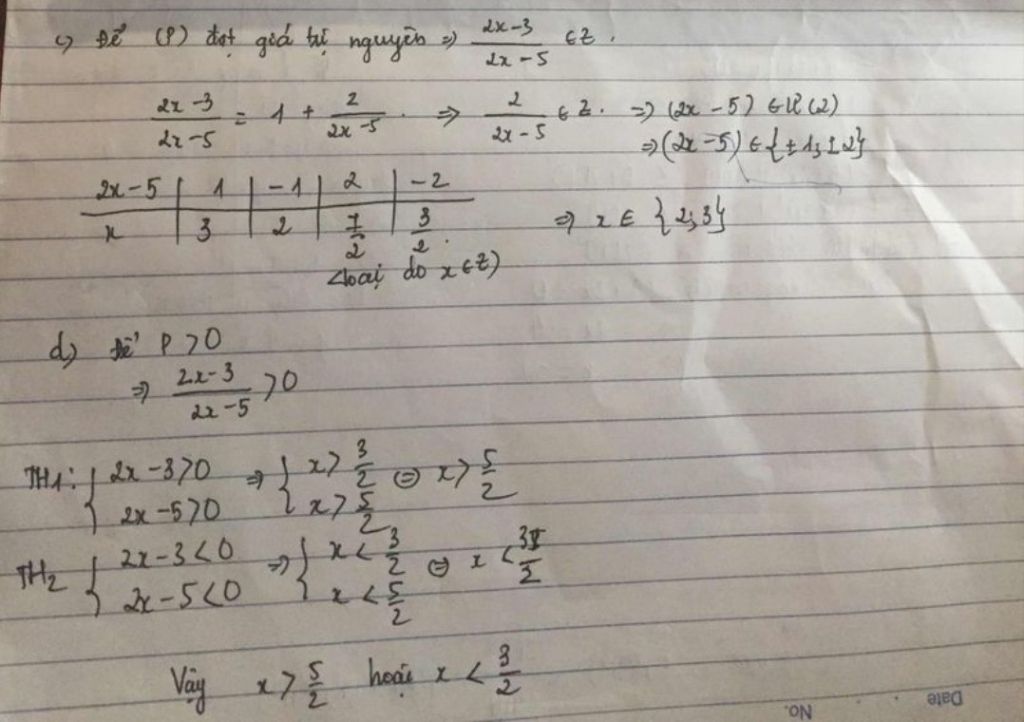 c) Để (P) đạt giá trị nguyên ⇒ (2x-3)/(2x-5) ∈ Z.
(2x-3)/(2x-5) = 1 + 2/(2x-5). ⇒ 2/(2x-5) ∈ Z. ⇒ (2x-5) ∈ Ư(2)
⇒ (2x-5) ∈ {±1; ±2}
2x-5 | 1 | -1 | 2 | -2
x | 3 | 2 | 7/2 | 3/2.
⇒ x ∈ {2;3}
<loại do x∈Z)
d) Để P > 0
⇒ (2x-3)/(2x-5) > 0
TH1: { 2x-3>0 ⇒ { x > 3/2 ⇔ x > 5/2
2x-5>0 x > 5/2
TH2 { 2x-3<0 ⇒ { x < 3/2 ⇔ x < 3/2
2x-5<0 x < 5/2
Vậy x > 5/2 hoặc x < 3/2
No.
Date